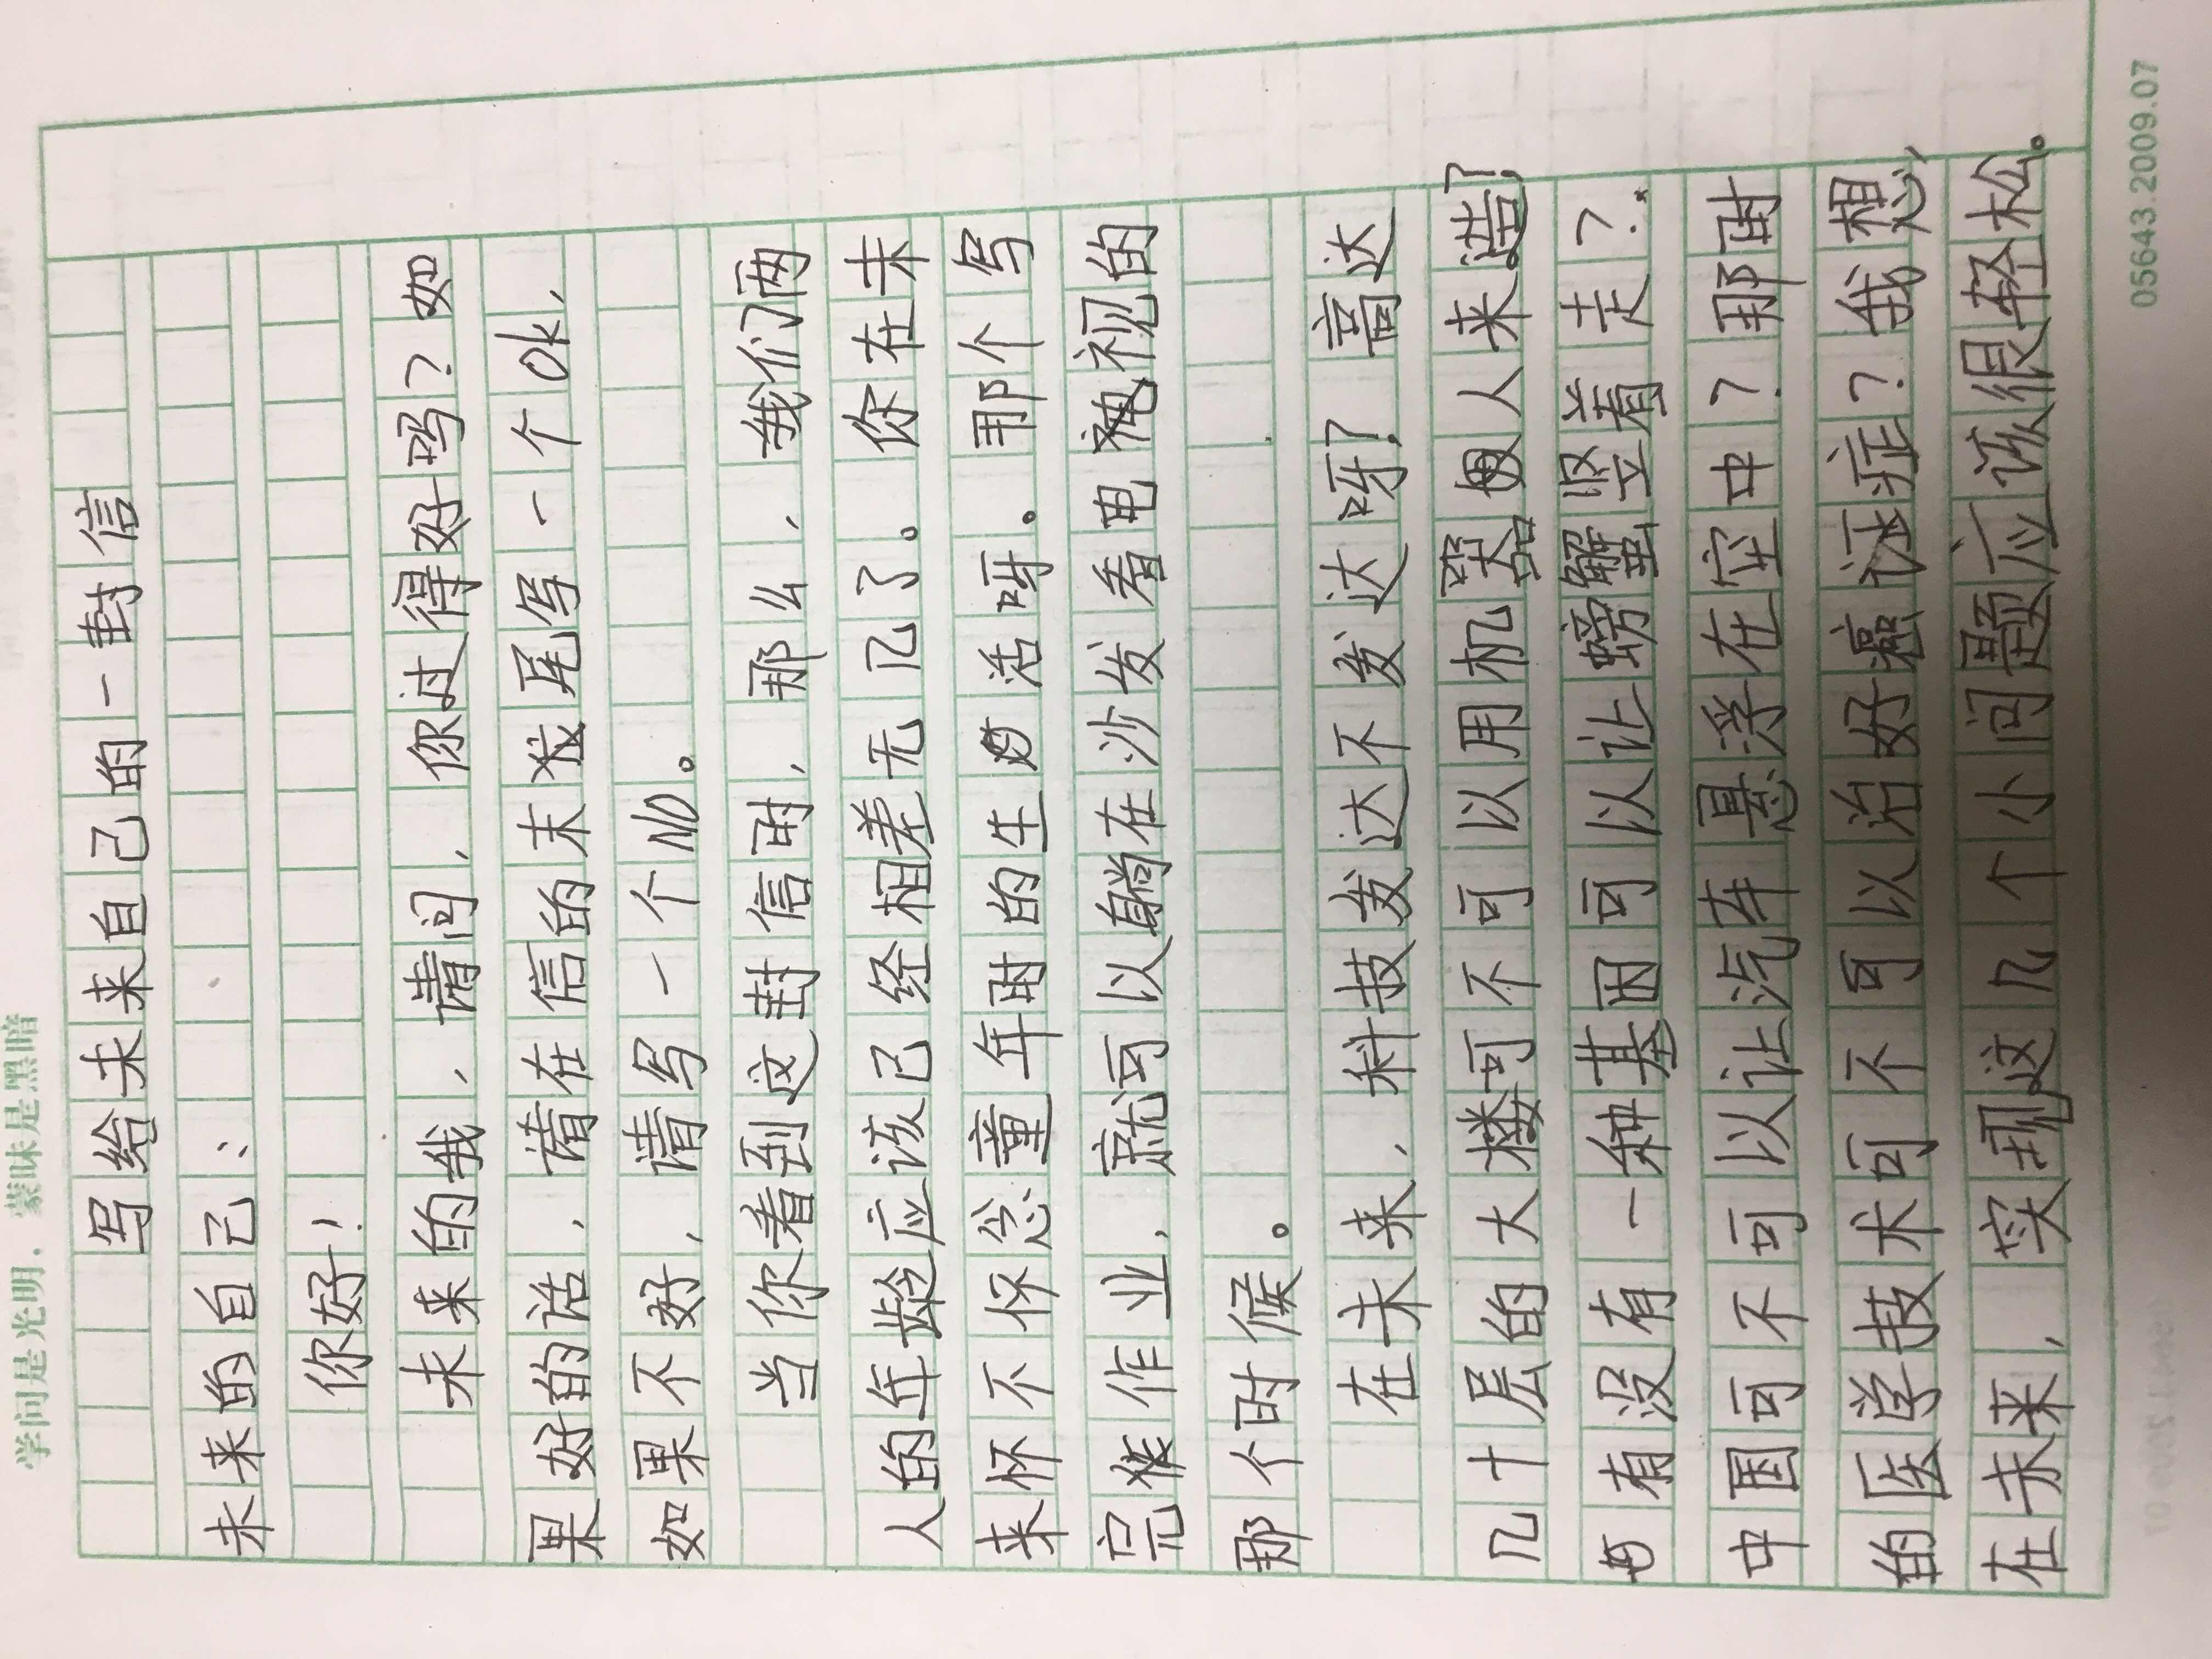 学问是光明，蒙昧是黑暗
写给未来自己的一封信
未来的自己：
你好！
未来的我，请问，你过得好吗？如
果好的话，请在信的末尾写一个ok，
如果不好，请写一个NO。
当你看到这封信时，那么，我们两
人的年龄应该已经相差无几了。你在未
来怀不怀念童年时的生活呀。那个写
完作业，就可以躺在沙发看电视的
那个时候。
在未来，科技发达不发达呀？高达
几十层的大楼可不可以用机器人来造？
有没有一种基因可以让螃蟹竖着走？
中国可不可以让汽车悬浮在空中？那时
的医学技术可不可以治好癌症？我想，
在未来，实现这几个小问题应该很轻松。
05643.2009.07